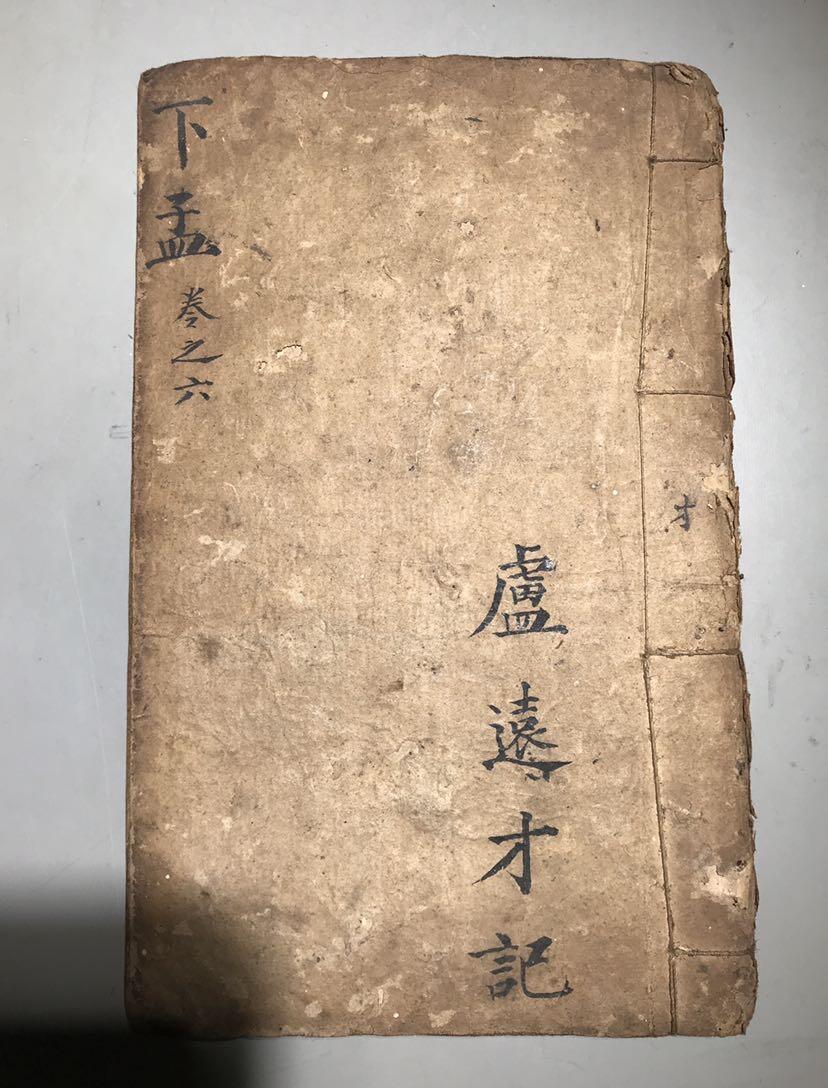 才
盧遠才記
下孟 卷之六